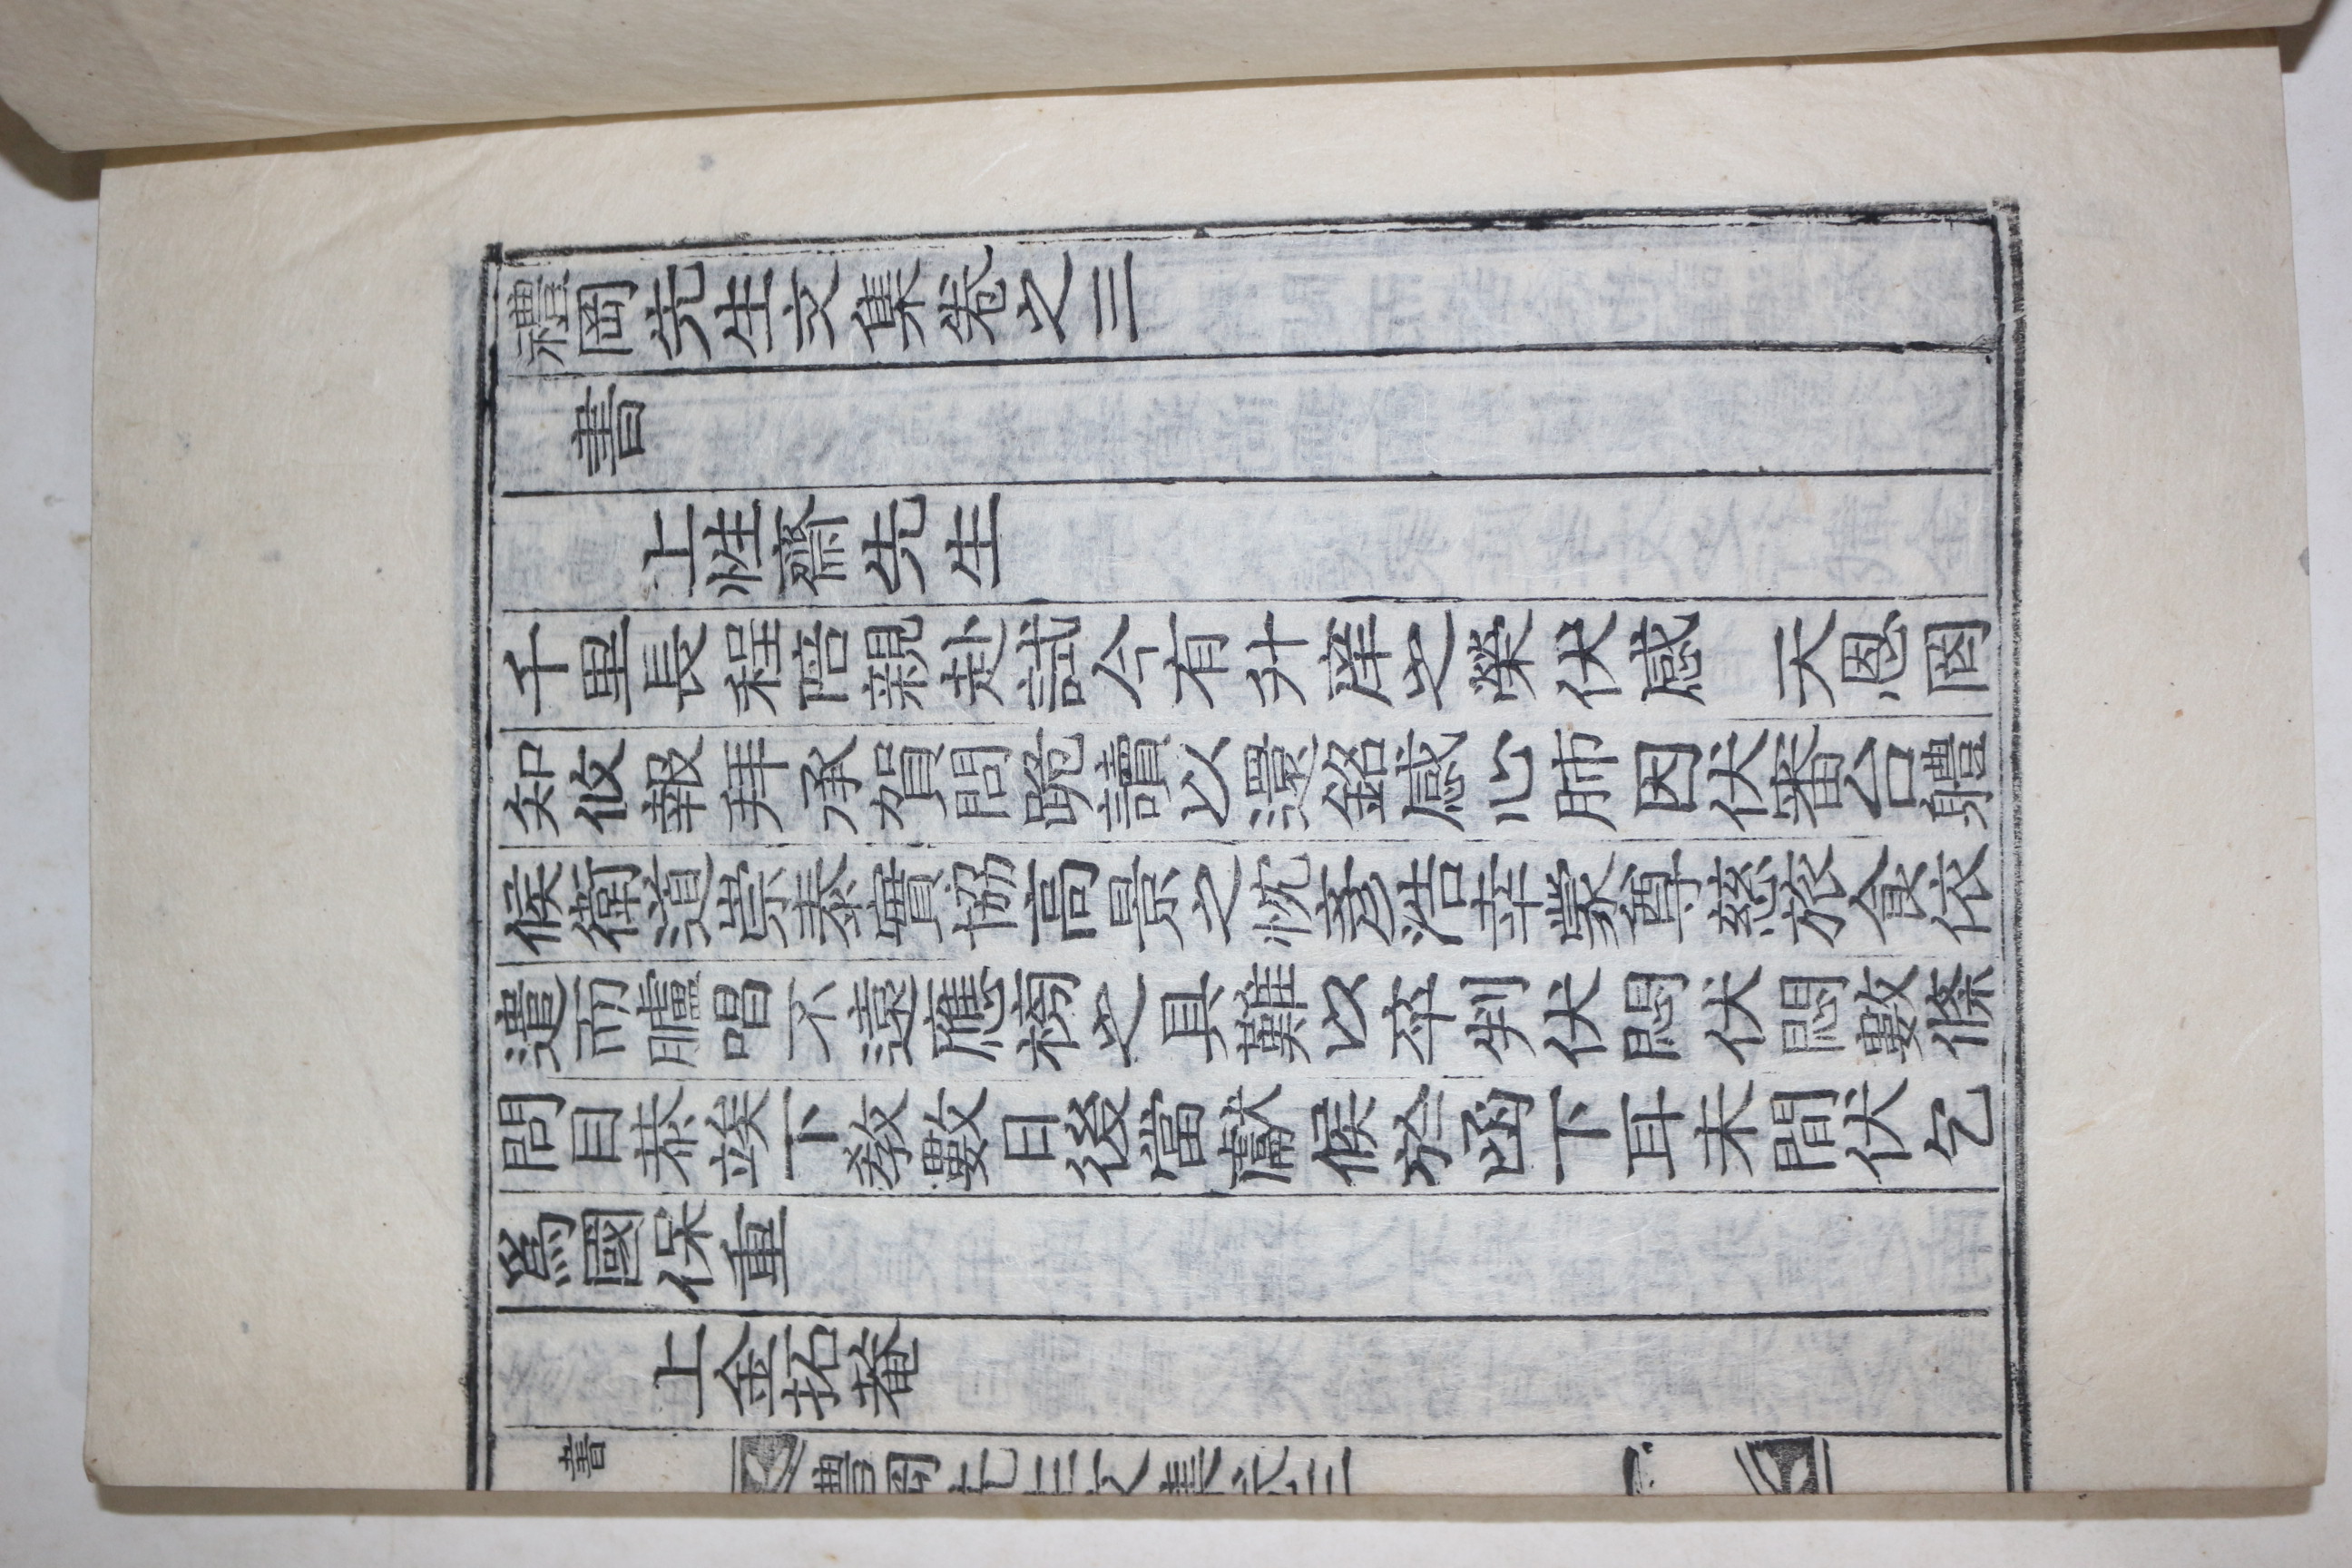 禮岡先生文集卷之三
書
上性齋先生
千里長程陪親赴試今有升庠之榮伏感 天恩罔
知攸報拜承賀問跪讀以還銘感心肺因伏審台軆
候衛道崇泰實協高景之忱彥浩幸蒙尊慈旅食依
遣而臚唱不遠應榜之具難以卒判伏悶伏悶數條
問目恭竢下敎數日後當獻候於函下耳未間伏乞
爲國保重
上金拓菴
書
禮岡先生文集卷三
一